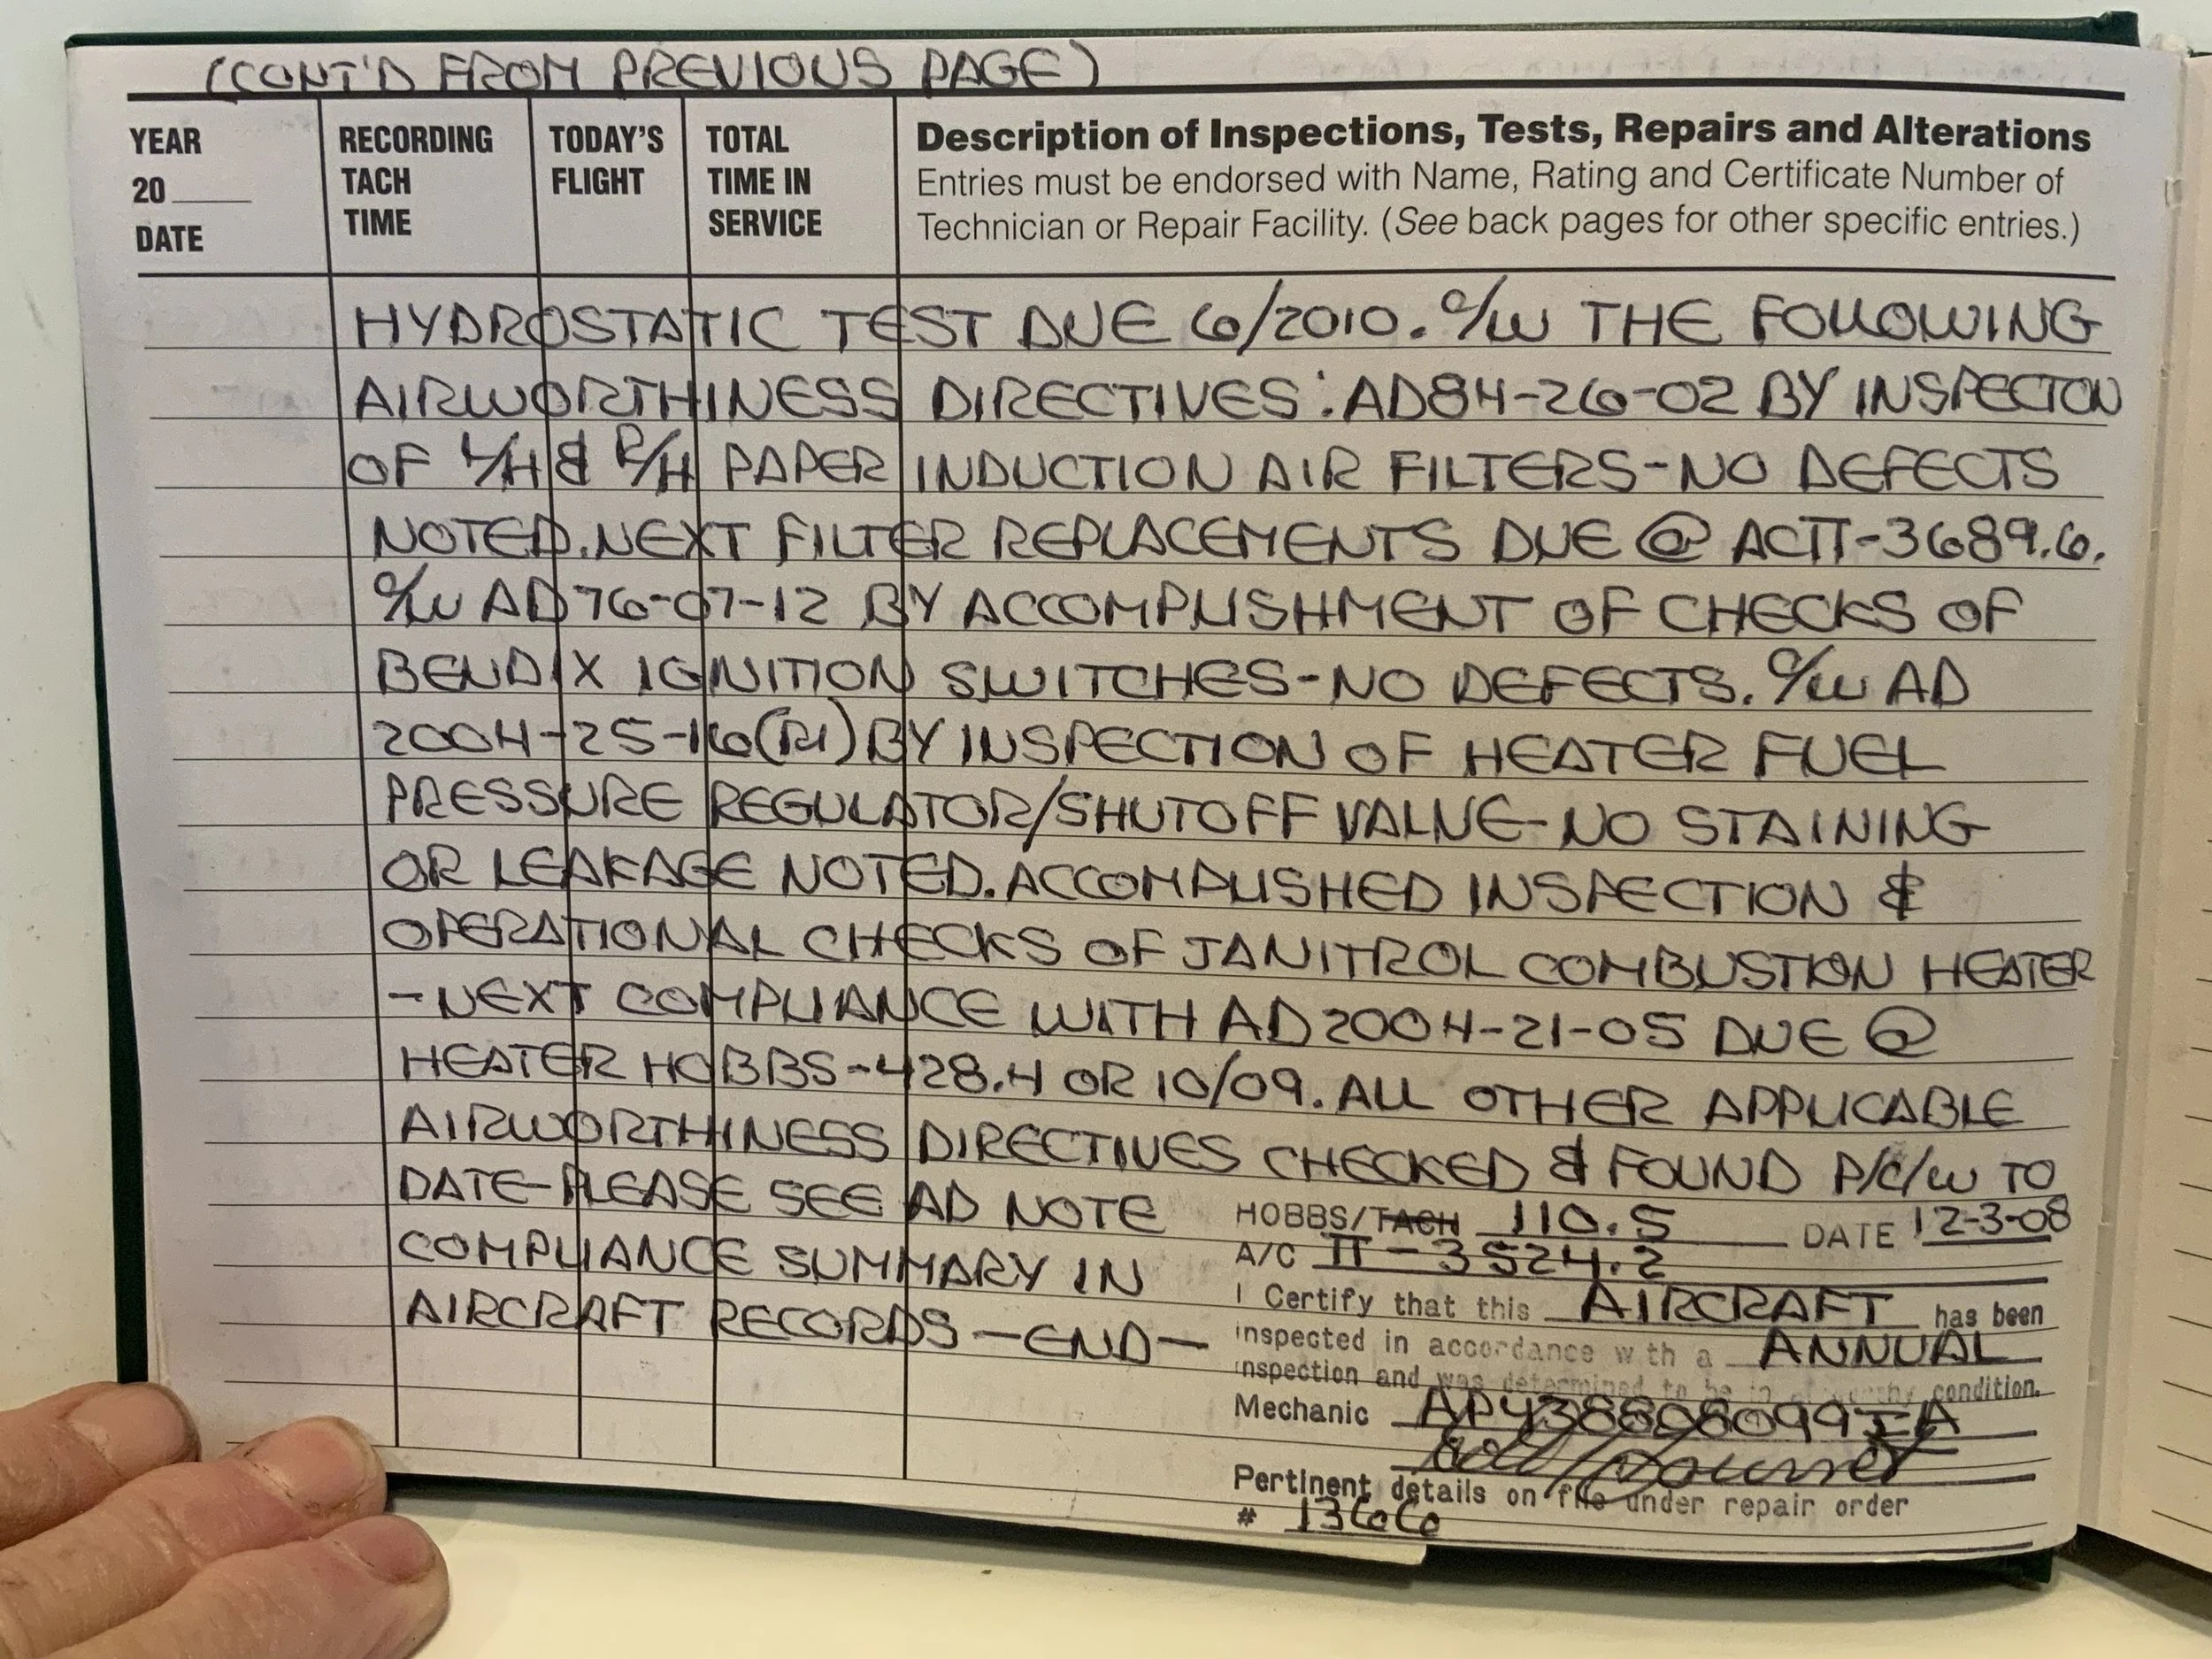 (CONT'D FROM PREVIOUS PAGE)
YEAR
20____
DATE
RECORDING
TACH
TIME
TODAY'S
FLIGHT
TOTAL
TIME IN
SERVICE
Description of Inspections, Tests, Repairs and Alterations
Entries must be endorsed with Name, Rating and Certificate Number of
Technician or Repair Facility. (See back pages for other specific entries.)
HYDROSTATIC TEST DUE 6/2010. C/W THE FOLLOWING
AIRWORTHINESS DIRECTIVES: AD84-26-02 BY INSPECTION
OF L/H & R/H PAPER INDUCTION AIR FILTERS-NO DEFECTS
NOTED. NEXT FILTER REPLACEMENTS DUE @ ACTT-3689.6.
C/W AD 76-07-12 BY ACCOMPLISHMENT OF CHECKS OF
BENDIX IGNITION SWITCHES-NO DEFECTS. C/W AD
2004-25-16(R1) BY INSPECTION OF HEATER FUEL
PRESSURE REGULATOR/SHUTOFF VALVE-NO STAINING
OR LEAKAGE NOTED. ACCOMPLISHED INSPECTION &
OPERATIONAL CHECKS OF JANITROL COMBUSTION HEATER
-NEXT COMPLIANCE WITH AD 2004-21-05 DUE @
HEATER HOBBS-428.4 OR 10/09. ALL OTHER APPLICABLE
AIRWORTHINESS DIRECTIVES CHECKED & FOUND P/C/W TO
DATE-PLEASE SEE AD NOTE
COMPLIANCE SUMMARY IN
AIRCRAFT RECORDS -END-
HOBBS/TACH 110.5 DATE 12-3-08
A/C TT-3524.2
I Certify that this AIRCRAFT has been
inspected in accordance with a ANNUAL
inspection and was determined to be in airworthy condition.
Mechanic AP438608099IA
Pertinent details on file under repair order
# 1366